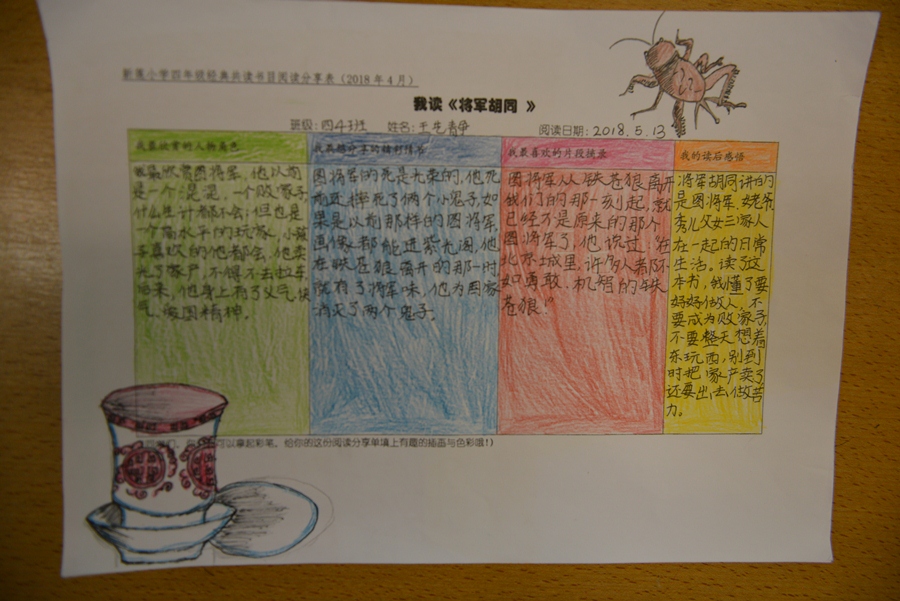 新莲小学四年级经典共读书目阅读分享表（2018年4月）
我读《将军胡同 》
班级：四4班 姓名：王艺静 阅读日期：2018.5.13
我最欣赏的人物角色
我最欣赏图将军，他以前
是一个混混，一个败家子，
什么生计都不会；但也是
一个高水平的玩家，小孩
子喜欢的他都会，他卖
光了家产，不得不去拉车，
后来，他身上有了义气、侠
气、爱国精神。
我最想分享的精彩情节
图将军的死是光荣的，他死
前还摔死了两个小鬼子，如
果是以前那样的图将军，
画像都能进紫光阁，他
在铁苍狼离开的那一时
就有了将军味，他为国家
消灭了两个鬼子。
我最喜欢的片段摘录
图将军从铁苍狼离开
我们的那一刻起，就
已经不是原来的那个
图将军了，他说过，“在
北京城里，许多人都不
如勇敢、机智的铁
苍狼！”
我的读后感悟
将军胡同讲的
是图将军、姥爷、
秀儿父女三家人
在一起的日常
生活。读了这
本书，我懂了要
好好做人，不
要成为败家子，
不要整天想着
东玩西，别到
时把家产卖了
还要出去做苦
力。
可以拿起彩笔，给你的这份阅读分享单填上有趣的插画与色彩哦！)